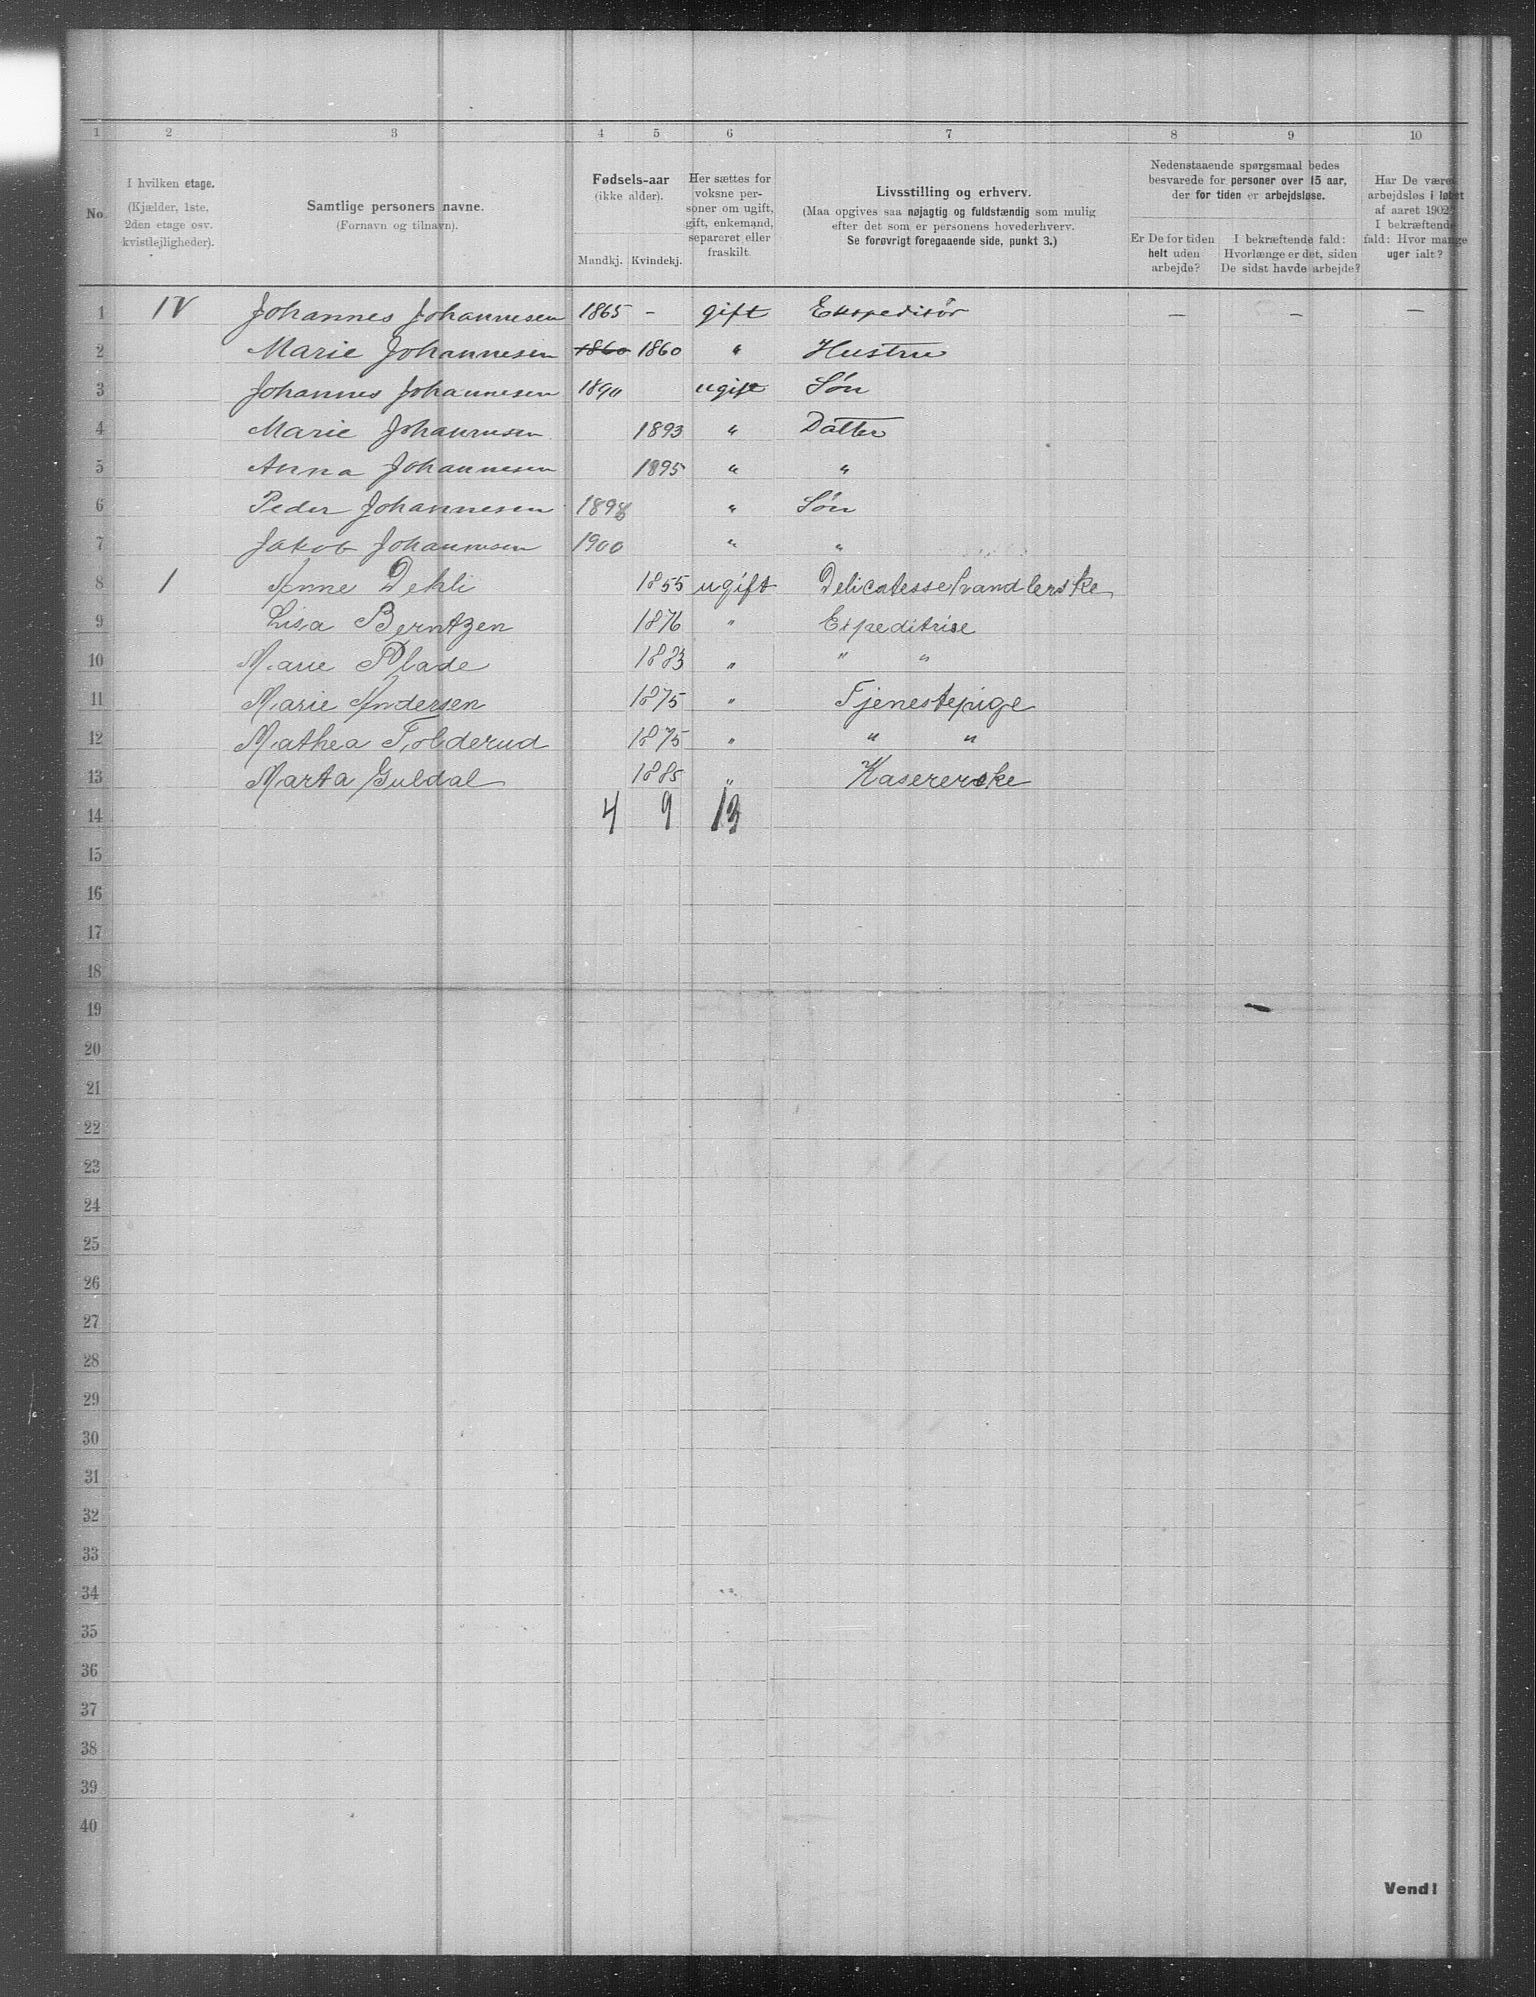 1 2 3 4 5 6 7 8 9 10
No.
I hvilken etage.
(Kjælder, 1ste,
2den etage osv.
kvistlejligheder).
Samtlige personers navne.
(Fornavn og tilnavn).
Fødsels-aar
(ikke alder).
Mandkj. Kvindekj.
Her sættes for
voksne per-
soner om ugift,
gift, enkemand,
separeret eller
fraskilt.
Livsstilling og erhverv.
(Maa opgives saa nøjagtig og fuldstændig som mulig
efter det som er personens hovederhverv.
Se forøvrigt foregaaende side, punkt 3.)
Nedenstaaende spørgsmaal bedes
besvarede for personer over 15 aar,
der for tiden er arbejdsløse.
Er De for tiden
helt uden
arbejde?
I bekræftende fald:
Hvorlænge er det, siden
De sidst havde arbejde?
Har De været
arbejdsløs i løbet
af aaret 1902?
I bekræftende
fald: Hvor mange
uger ialt?
1 IV Johannes Johannesen 1865 - gift Ekspeditør - - -
2 Marie Johannesen 1860 1860 " Hustru
3 Johannes Johannesen 1890 ugift Søn
4 Marie Johannesen 1893 " Datter
5 Anna Johannesen 1895 " "
6 Peder Johannesen 1898 " Søn
7 Jakob Johannesen 1900 " "
8 1 Anne Dehli 1855 ugift Delicatessehandlerske
9 Lisa Berntzen 1876 " Expeditrise
10 Marie Plade 1883 " " "
11 Marie Andersen 1875 " Tjenestepige
12 Mathea Tolderud 1875 " " "
13 Marta Guldal 1885 " Kasererske
14 4 9 13
15
16
17
18
19
20
21
22
23
24
25
26
27
28
29
30
31
32
33
34
35
36
37
38
39
40
Vend!